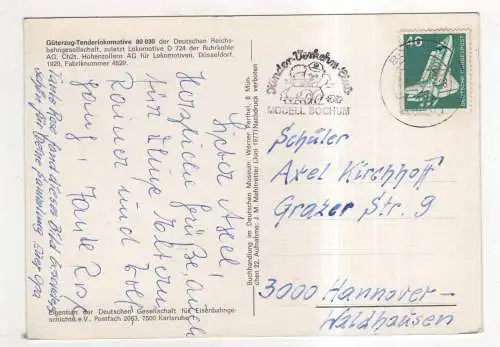 Güterzug-Tenderlokomotive 80 030 der Deutschen Reichs-
bahngesellschaft, zuletzt Lokomotive D 724 der Ruhrkohle
AG, Ch2t. Hohenzollern AG für Lokomotiven, Düsseldorf,
1929, Fabriknummer 4629.
Lieber Axel!
Herzliche Grüße, auch
für Deine Eltern
Rainer und
Tante Rose
Tante Rose fand dieses Bild
für Deine Sammlung
Eigentum der Deutschen Gesellschaft für Eisenbahnge-
schichte e.V., Postfach 2063, 7500 Karlsruhe 1
Buchhandlung im Deutschen Museum. Werner Perthel. 8 Mün-
chen 22. Aufnahme: J. M. Mehltretter (Juni 1977) Nachdruck verboten
Kinder-Verkehrs-Club
MODELL BOCHUM
40
DEUTSCHE BUNDESPOST
Schüler
Axel Kirchhoff
Grazer Str. 9
3000 Hannover-
Waldhausen